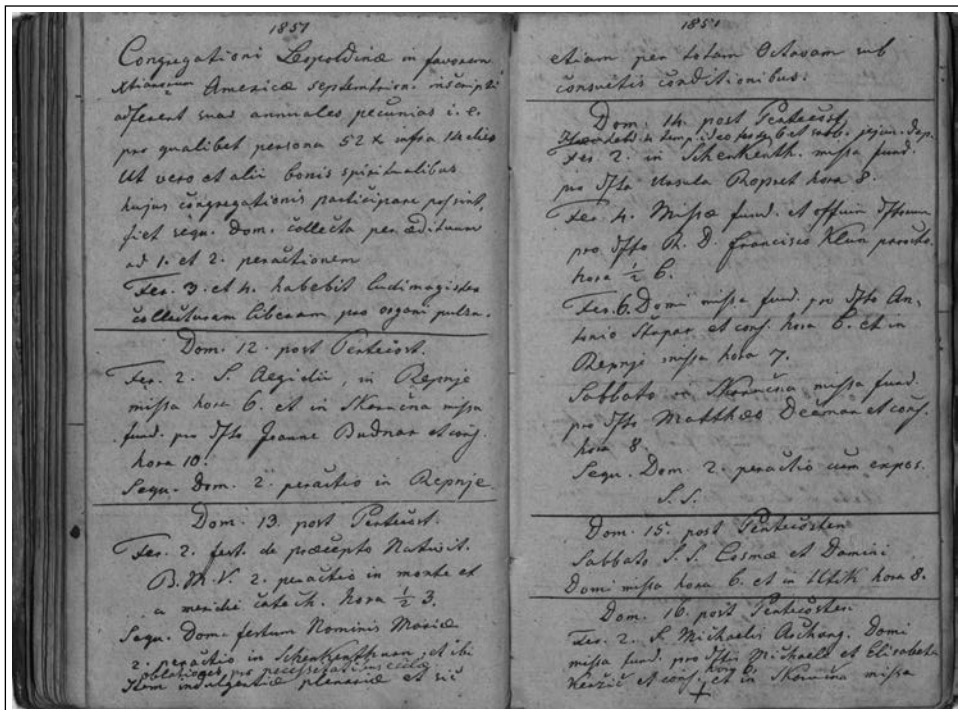 1851
Congregationi Leopoldinæ in favorem
Xtianorum Americæ septemtrion. inscripti
adferent suas annuales pecunias i. e.
pro qualibet persona 52 x infra 14 dies
Ut vero et alii bonis spiritualibus
hujus congregationis participare possint,
fiet sequ. Dom. collecta per ædituum
ad 1. et 2. peractionem
Fer. 3. et 4. habebit ludimagister
collecturam liberam pro organi pulsu.
Dom. 12. post Pentecost.
Fer. 2. S. Aegidii, in Repnje
missa hora 6. et in Skaručna missa
fund. pro Dfto Joanne Budnar et conj.
hora 10.
Sequ. Dom. 2. peractio in Repnje.
Dom. 13. post Pentecost.
Fer. 2. fest. de præcepto Nativit.
B. M. V. 2. peractio in monte et
a meridie catech. hora ½ 3.
Sequ. Dom. festum Nominis Mariæ
2. peractio in Schenkenthurn, et ibi
oblationes pro necessitatibus
Item indulgentiæ plenariæ et sic
1851
etiam per totam Octavam sub
consuetis conditionibus.
Dom. 14. post Pentecost.
temp. ideo 6 et sabb. jejun.
Fer. 2. in Schenkenth. missa fund.
pro Dfta Ursula Ropret hora 8.
Fer. 4. Missæ fund. et officium Dftorum
pro Dfto R. D. Francisco Klun parocho.
hora ½ 6.
Fer. 6. Domi missa fund. pro Dfto An-
tonio Stupar et conj. hora 6. et in
Repnje missa hora 7.
Sabbato in Skaručna missa fund.
pro Dfto Matthæo et conj.
hora 8.
Sequ. Dom. 2. peractio cum expos.
S. S.
Dom. 15. post Pentecosten
Sabbato S. S. Cosmæ et Damini
Domi missa hora 6. et in Utik hora 8.
Dom. 16. post Pentecosten
Fer. 2. S. Michaelis Archang. Domi
missa fund. pro Dftis Michaele et Elisabeta
hora 6.
et conj. et in Skaručna missa